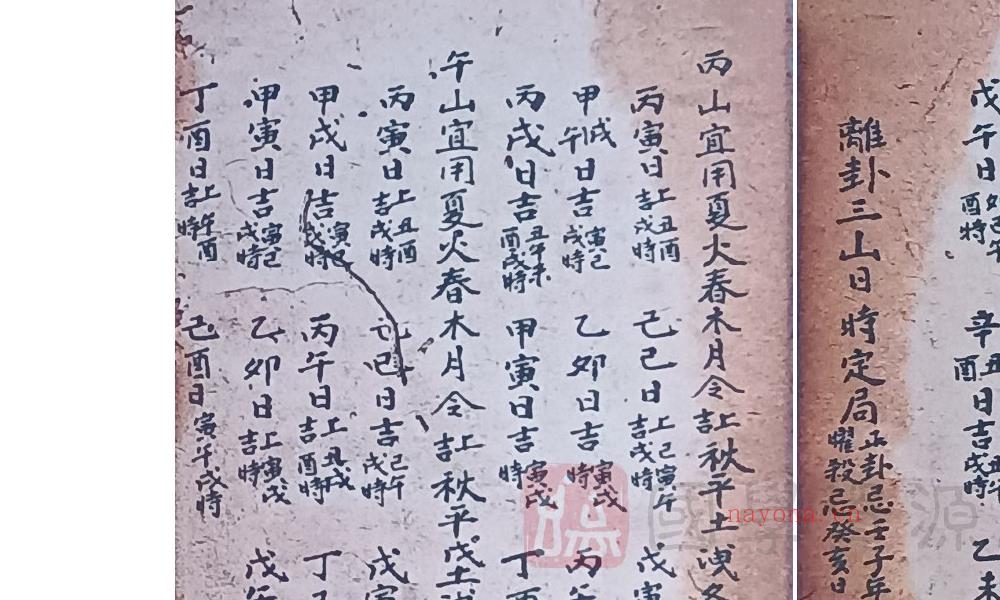 戊午日
酉時
辛丑日吉戌時
酉
乙未
離卦三山日時定局
正卦忌壬子年
曜殺忌癸亥日
丙山宜用夏火春木月令上吉秋平土洩冬
丙寅日上吉丑酉戌時 己巳日上吉己寅午戌時 戊寅
甲戌午日吉寅己戌時 乙卯日吉寅戌時 丙午
丙戌日吉丑午未酉戌時 甲寅日吉寅戌時 丁
午山宜用夏火春木月令上吉秋平戊土
丙寅日上吉丑酉戌時 己巳日吉己午戌時 戊寅
甲戌日吉寅己戌時 丙午日上吉丑戌酉時 丁
甲寅日吉寅己戌時 乙卯日上吉寅戌時 戊午
丁酉日上吉午酉時 己酉日寅午戌時
國學 源
nayona.cn